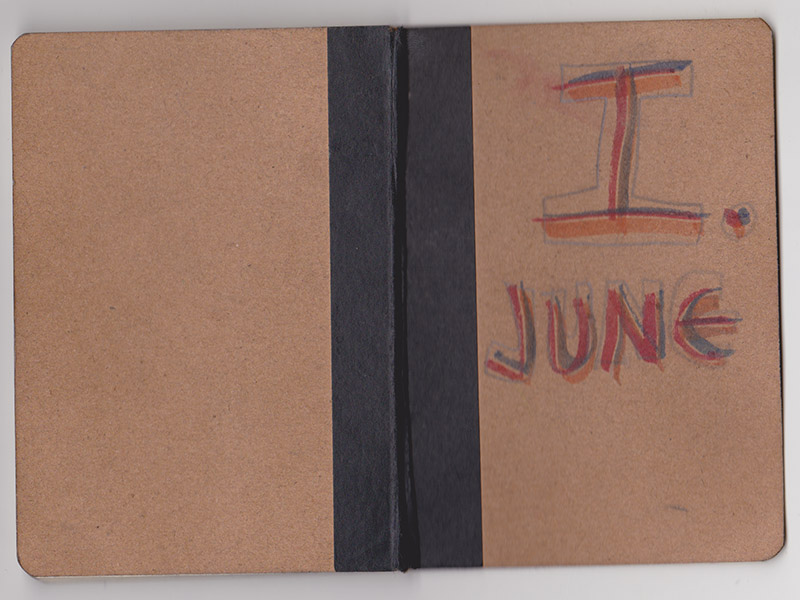 I.
JUNE